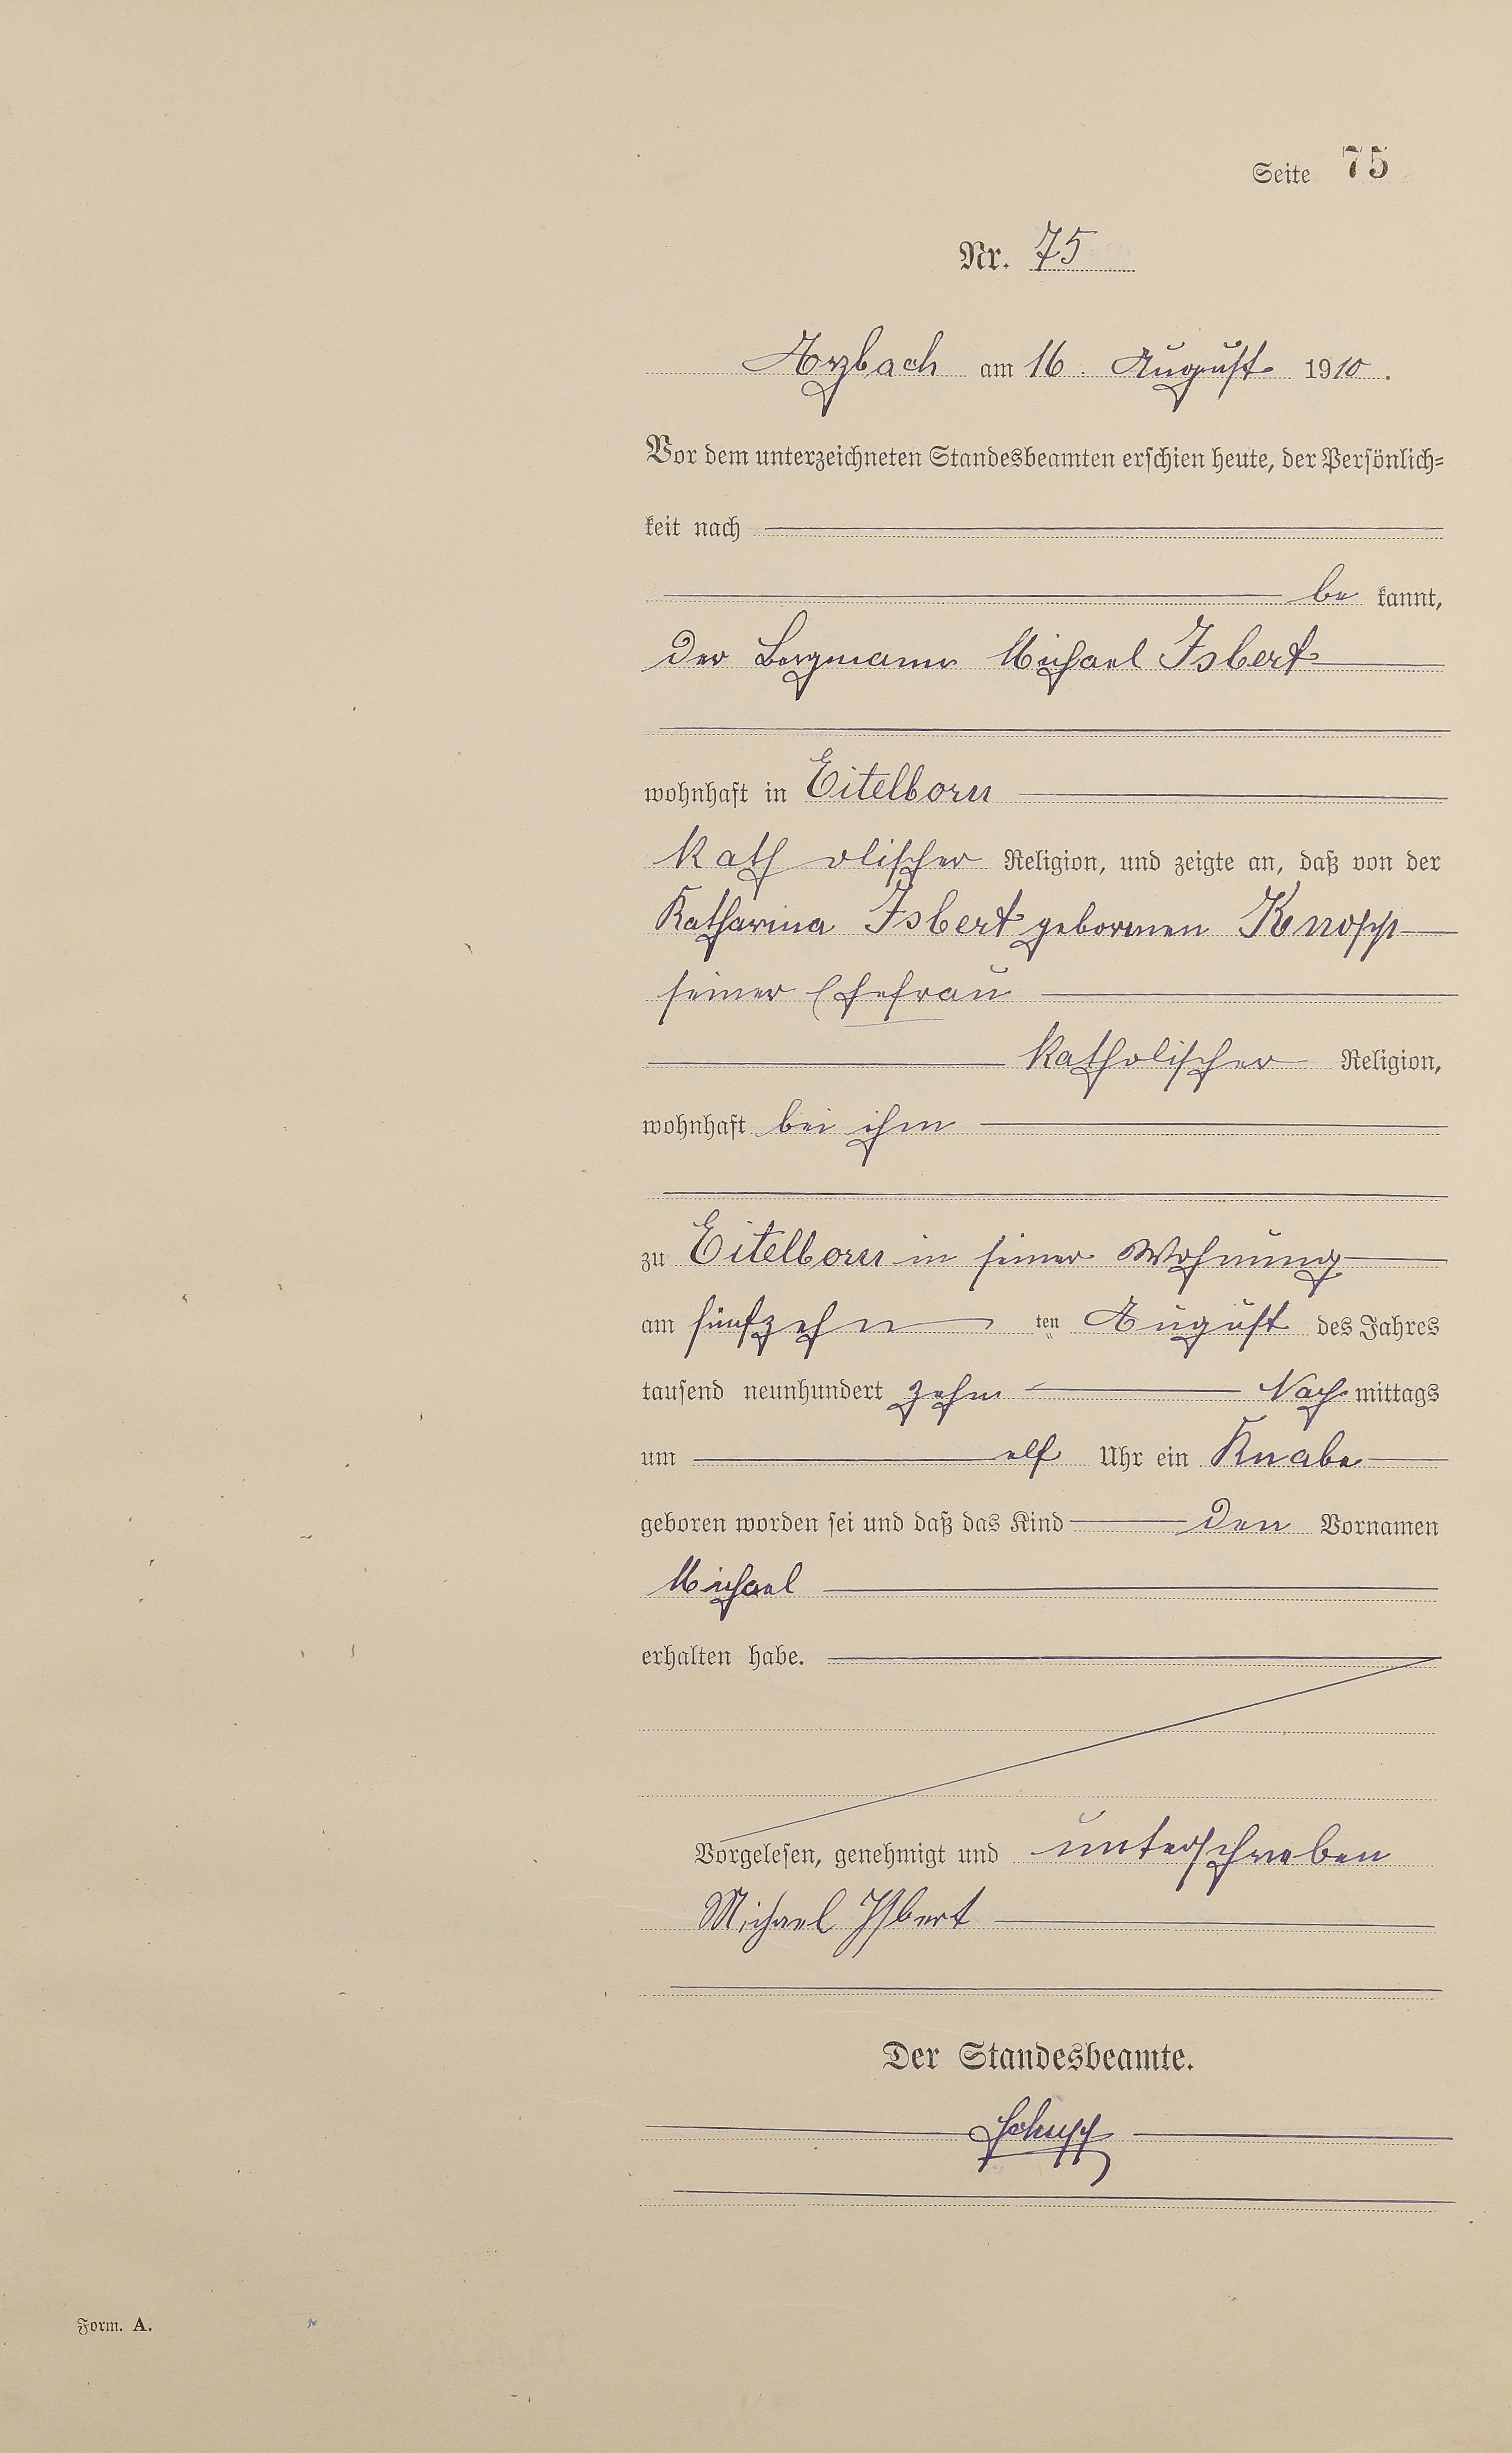 Seite 75
Nr. 75
Arzbach am 16. August 1910.
Vor dem unterzeichneten Standesbeamten erschien heute, der Persönlich-
keit nach
be kannt,
der Bergmann Michael Isbert
wohnhaft in Eitelborn
kath olischer Religion, und zeigte an, daß von der
Katharina Isbert gebornen Knopp
seiner Ehefrau
katholischer Religion,
wohnhaft bei ihm
zu Eitelborn in seiner Wohnung
am fünfzehn ten August des Jahres
tausend neunhundert zehn Nach mittags
um elf Uhr ein Knabe
geboren worden sei und daß das Kind den Vornamen
Michael
erhalten habe.
Vorgelesen, genehmigt und unterschrieben
Michael Isbert
Der Standesbeamte.
Schupp
Form. A.